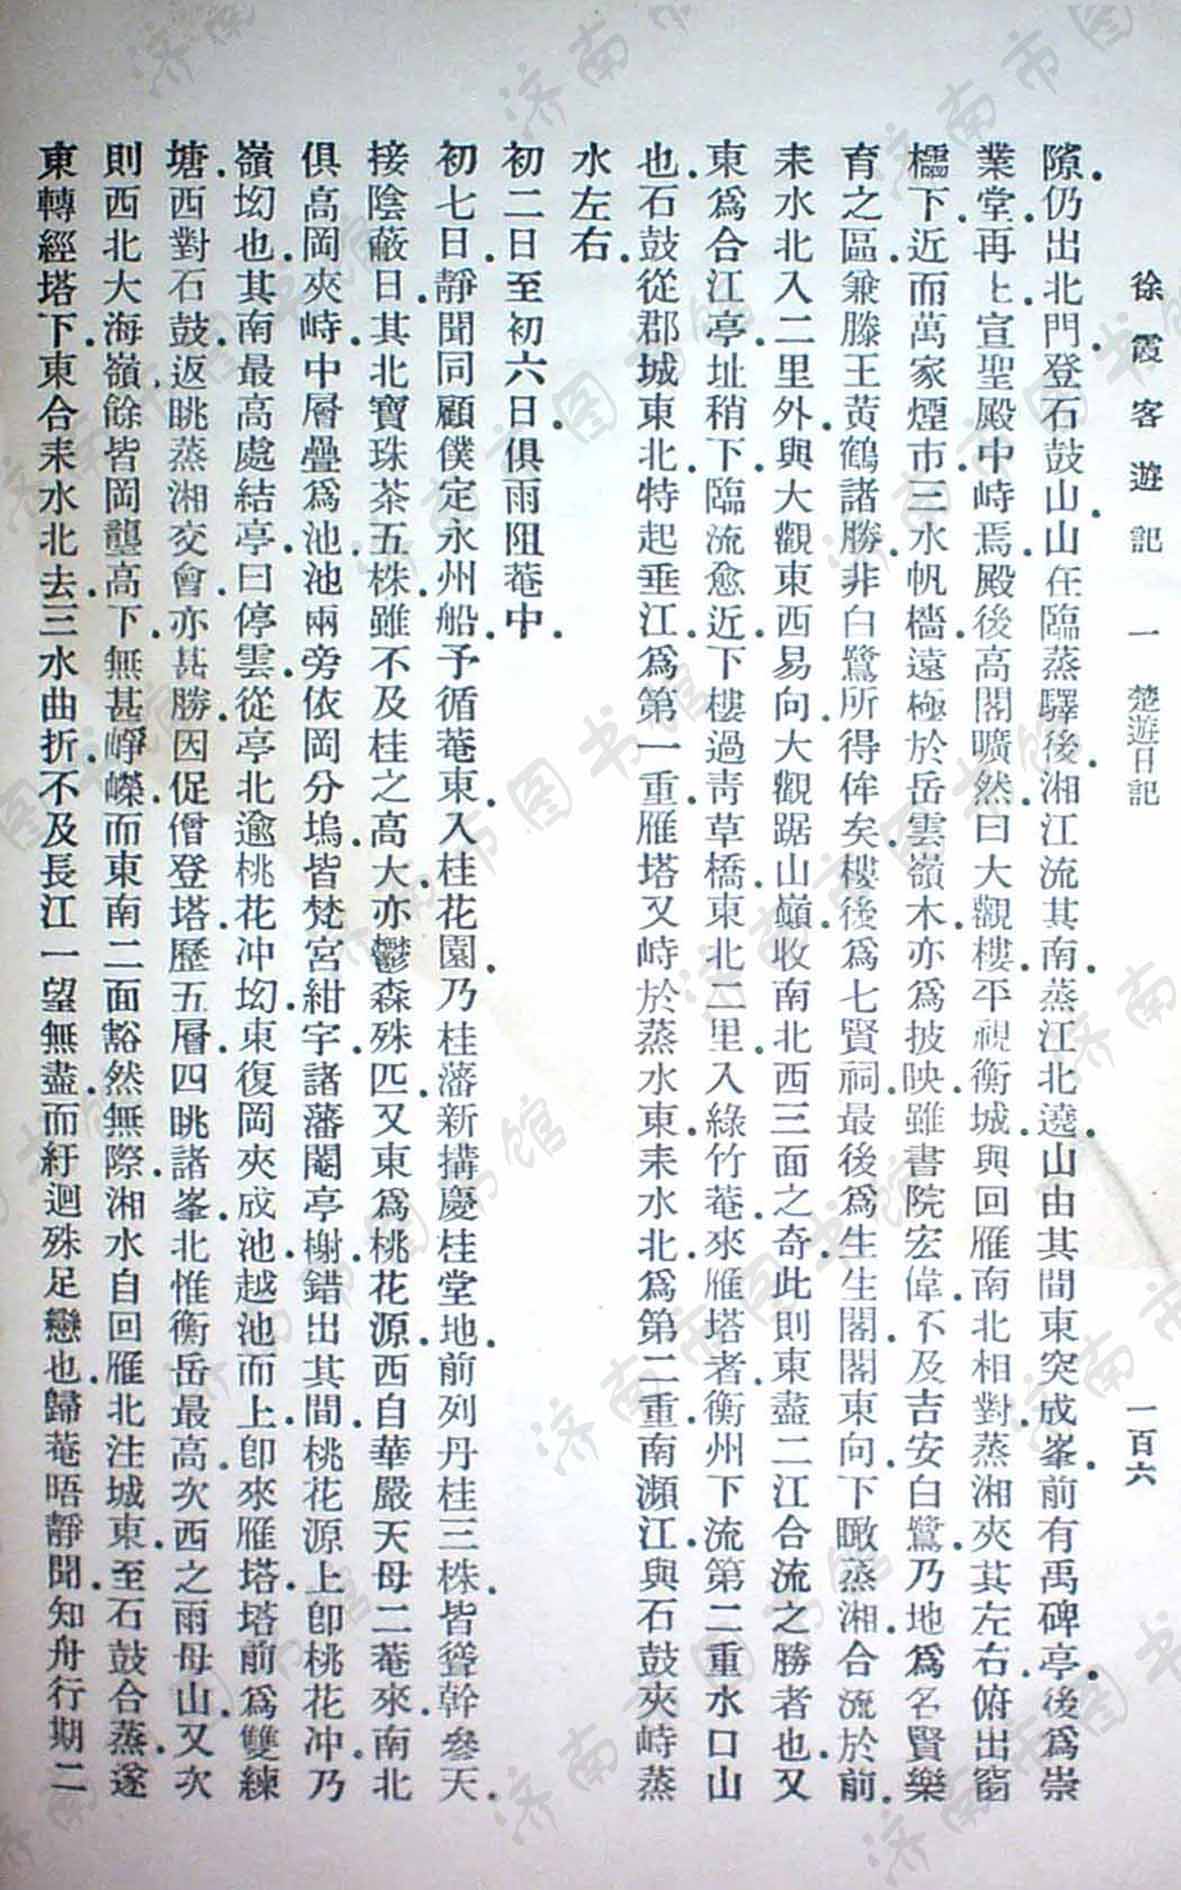 徐霞客遊記 一 楚遊日記 一百六
隙仍出北門登石鼓山山在臨蒸驛後湘江流其南蒸江北遶山由其間東突成峯前有禹碑亭後爲崇
業堂再上宣聖殿中峙焉殿後高閣曠然曰大觀樓平視衡城與回雁南北相對蒸湘夾其左右俯出窗
櫺下近而萬家煙市三水帆檣遠極於岳雲嶺木亦爲披映雖書院宏偉不及吉安白鷺乃地爲名賢樂
育之區兼滕王黃鶴諸勝非白鷺所得侔矣樓後爲七賢祠最後爲生生閣閣東向下瞰蒸湘合流於前
耒水北入二里外與大觀東西易向大觀踞山巔收南北西三面之奇此則東盡二江合流之勝者也又
東爲合江亭址稍下臨流愈近下樓過青草橋東北二里入綠竹菴來雁塔者衡州下流第二重水口山
也石鼓從郡城東北特起垂江爲第一重雁塔又峙於蒸水東耒水北爲第二重南瀕江與石鼓夾峙蒸
水左右
初二日至初六日俱雨阻菴中
初七日靜聞同顧僕定永州船予循菴東入桂花園乃桂藩新搆慶桂堂地前列丹桂三株皆聳幹參天
接陰蔽日其北寶珠茶五株雖不及桂之高大亦鬱森殊匹又東爲桃花源西自華嚴天母二菴來南北
俱高岡夾峙中層疊爲池池兩旁依岡分塢皆梵宮紺宇諸藩閹亭榭錯出其間桃花源上卽桃花冲乃
嶺坳也其南最高處結亭曰停雲從亭北逾桃花冲坳東復岡夾成池越池而上卽來雁塔塔前爲雙練
塘西對石鼓返眺蒸湘交會亦甚勝因促僧登塔歷五層四眺諸峯北惟衡岳最高次西之雨母山又次
則西北大海嶺餘皆岡壟高下無甚崢嶸而東南二面豁然無際湘水自回雁北注城東至石鼓合蒸遂
東轉經塔下東合耒水北去三水曲折不及長江一望無盡而紆迴殊足戀也歸菴晤靜聞知舟行期二